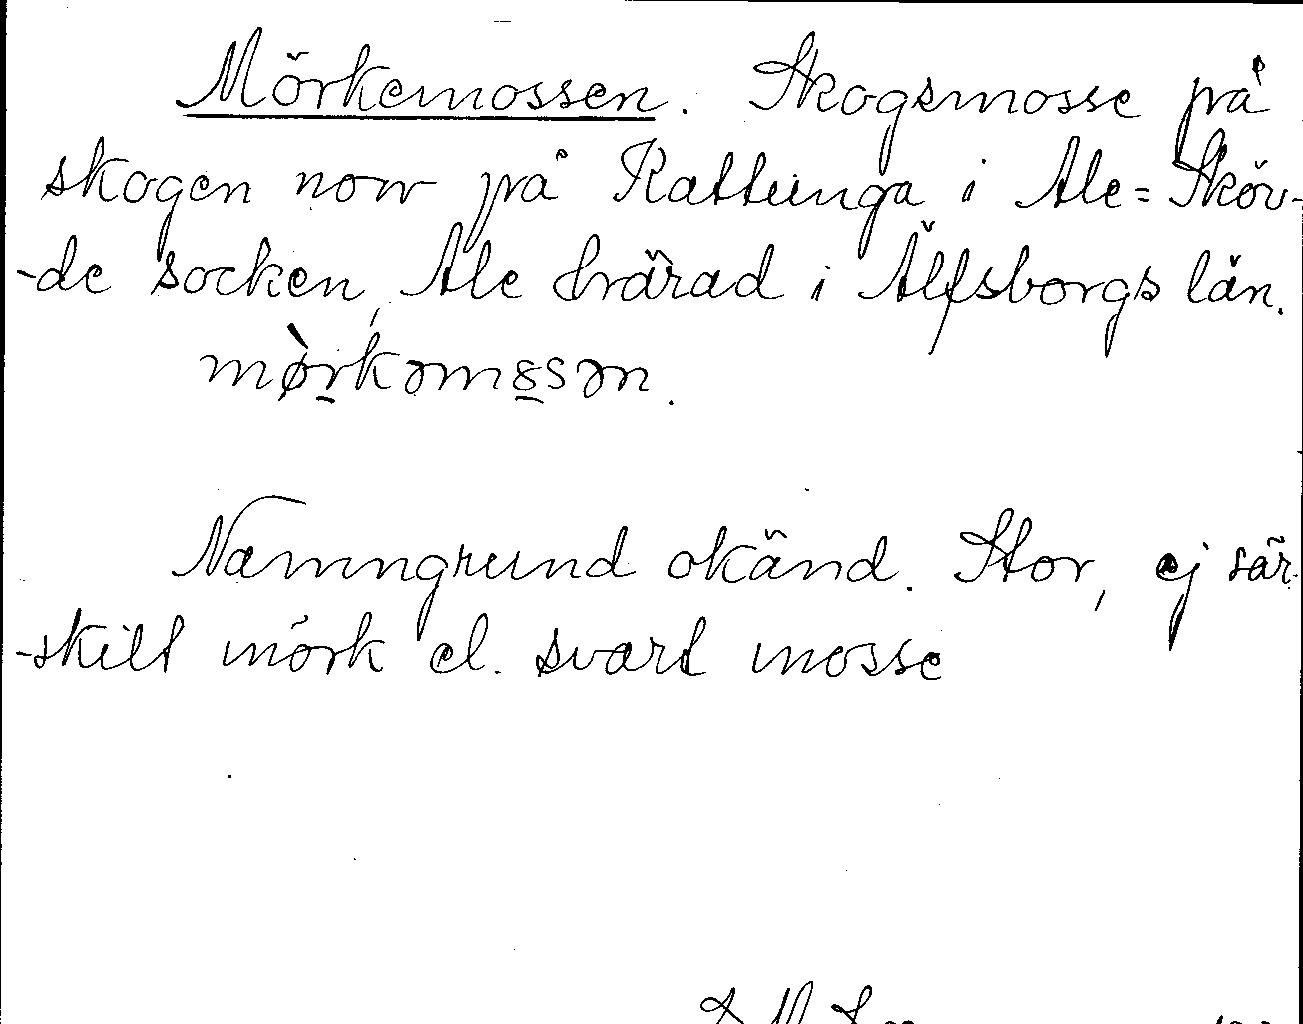 Mörkemossen. Skogsmosse på
skogen norr på Rattunga i Ale=Sköv-
-de socken, Ale härad i Älfsborgs län.

Namngrund okänd. Stor, ej sär-
-skilt mörk el. svart mosse